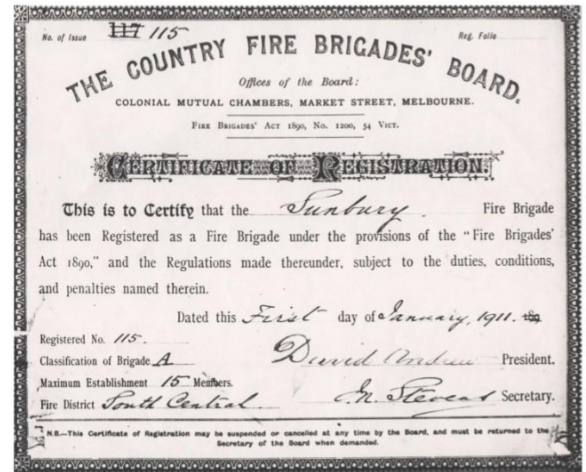 No. of Issue 117 115 Reg. Folio
THE COUNTRY FIRE BRIGADES' BOARD.
Offices of the Board:
COLONIAL MUTUAL CHAMBERS, MARKET STREET, MELBOURNE.
FIRE BRIGADES' ACT 1890, No. 1200, 54 VICT.
CERTIFICATE OF REGISTRATION.
This is to Certify that the Sunbury. Fire Brigade
has been Registered as a Fire Brigade under the provisions of the "Fire Brigades'
Act 1890," and the Regulations made thereunder, subject to the duties, conditions,
and penalties named therein.
Dated this First day of January, 1911. 189
Registered No. 115.
Classification of Brigade A David Andrew President.
Maximum Establishment 15 Members.
Fire District South Central. Stevens Secretary.
N.B.—This Certificate of Registration may be suspended or cancelled at any time by the Board, and must be returned to the
Secretary of the Board when demanded.